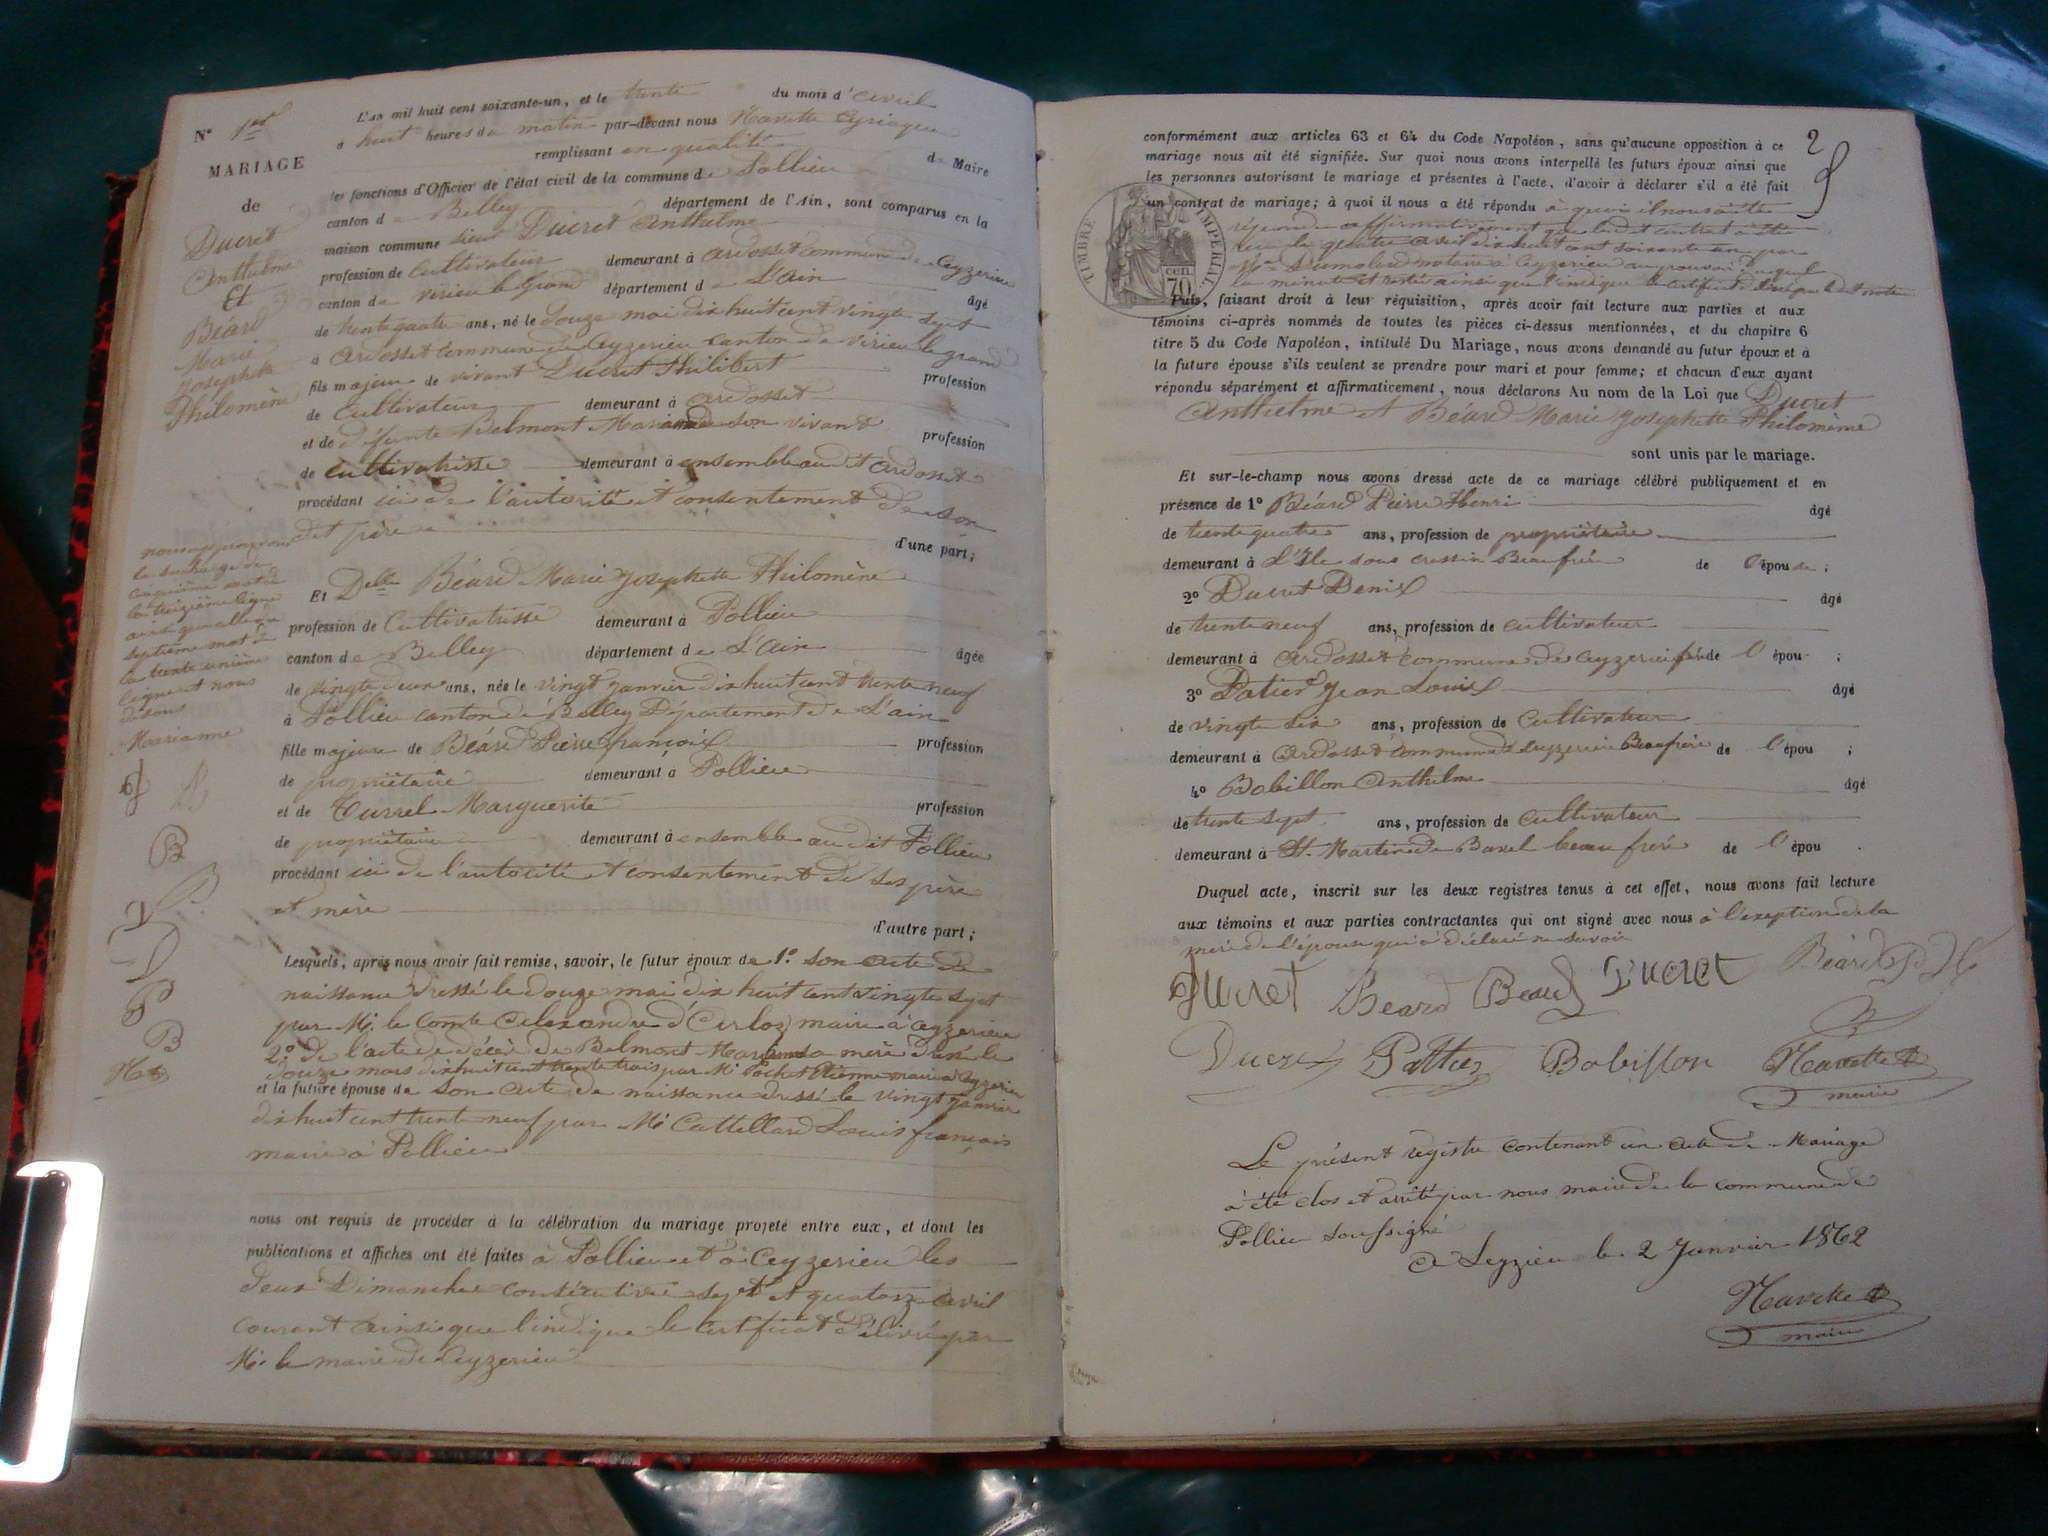 N° 1er
MARIAGE
de
Ducret
Anthelme
Et
Béard
Marie
Josephette
Philomène
L'an mil huit cent soixante-un, et le trente du mois d'avril
à huit heures du matin par-devant nous Navette Cyriaque
remplissant en qualité de Maire
les fonctions d'Officier de l'état civil de la commune de Pollieu
canton de Belley département de l'Ain, sont comparus en la
maison commune sieur Ducret Anthelme
profession de Cultivateur demeurant à ardosset commune de Ceyzerieu
canton de virieu le Grand département de L'ain âgé
de trente quatre ans, né le douze mai dix huit cent vingt sept
à ardosset commune de Ceyzerieu canton de virieu le grand
fils majeur de vivant Ducret Philibert profession
de Cultivateur demeurant à ardosset
et de défunte Belmont Marianne de son vivant profession
de cultivatrisse demeurant à ensemble au dit ardosset
procédant ici de l'autorité et consentement de son
dit père d'une part;
nous approuvons
la surcharge du
cinquième mot de
la treizième ligne
ainsi que celle du
septième mot de
la trente unième
ligne et nous
disons
Marianne
Et Delle Béard Marie Josephette Philomène
profession de Cultivatrisse demeurant à Pollieu
canton de Belley département de L'Ain âgée
de vingt deux ans, née le vingt janvier dix huit cent trente neuf
à Pollieu canton de Belley Département de L'ain
fille majeure de Béard Pierre françois profession
de propriétaire demeurant à Pollieu
et de Turrel Marguerite profession
de propriétaire demeurant à ensemble au dit Pollieu
procédant ici de l'autorité et consentement de ses père
et mère
d'autre part;
Lesquels, après nous avoir fait remise, savoir, le futur époux de 1.° son acte de
naissance dressé le douze mai dix huit cent vingt sept
par Mr. le Comte Alexandre d'Arloz maire à Ceyzerieu
2.° de l'acte de décès de Belmont Marianne sa mère dressé le
douze mars dix huit cent trente trois par Mr Pochet Etienne maire à Ceyzerieu
et la future épouse de son acte de naissance dressé le vingt janvier
dix huit cent trente neuf par Mr Cattelland Louis françois
maire à Pollieu
nous ont requis de procéder à la célébration du mariage projeté entre eux, et dont les
publications et affiches ont été faites à Pollieu et à Ceyzerieu les
deux Dimanches consécutives sept et quatorze avril
courant ainsi que l'indique le certificat délivré par
Mr. le maire de Ceyzerieu
2
conformément aux articles 63 et 64 du Code Napoléon, sans qu'aucune opposition à ce
mariage nous ait été signifiée. Sur quoi nous avons interpellé les futurs époux ainsi que
les personnes autorisant le mariage et présentes à l'acte, d'avoir à déclarer s'il a été fait
un contrat de mariage; à quoi il nous a été répondu à quoi il nous a été
répondu affirmativement que le dit contrat a été
reçu le quatre avril dix huit cent soixante un par
Me Dumolard notaire à Ceyzerieu au pouvoir duquel
la minute est restée ainsi que l'indique le certificat délivré par le dit notaire
TIMBRE IMPÉRIAL
70 cen
Puis, faisant droit à leur réquisition, après avoir fait lecture aux parties et aux
témoins ci-après nommés de toutes les pièces ci-dessus mentionnées, et du chapitre 6
titre 5 du Code Napoléon, intitulé Du Mariage, nous avons demandé au futur époux et à
la future épouse s'ils veulent se prendre pour mari et pour femme; et chacun d'eux ayant
répondu séparément et affirmativement, nous déclarons Au nom de la Loi que Ducret
Anthelme et Béard Marie Josephette Philomème
sont unis par le mariage.
Et sur-le-champ nous avons dressé acte de ce mariage célébré publiquement et en
présence de 1° Béard Pierre Henri âgé
de trente quatre ans, profession de propriétaire
demeurant à L'Ile sous cressin Beau frère de l'épouse;
2° Ducret Denis âgé
de trente neuf ans, profession de cultivateur
demeurant à ardosset commune de Ceyzerieu frère de l'épou ;
3° Patier Jean Louis âgé
de vingt six ans, profession de Cultivateur
demeurant à ardosset commune de Ceyzerieu Beaufrère de l'épou ;
4° Bobillon Anthelme âgé
de trente sept ans, profession de Cultivateur
demeurant à St. Martin de Bavel beau frère de l'épou .
Duquel acte, inscrit sur les deux registres tenus à cet effet, nous avons fait lecture
aux témoins et aux parties contractantes qui ont signé avec nous à l'exeption de la
mère de l'épouse qui a déclaré ne savoir
Ducret Beard Beard Ducret Béard P H
Ducret Pattier Bobillon Navette
maire
Le présent registre contenant un acte de Mariage
à été clos et arrêté par nous maire de la commune de
Pollieu soussigné
A Leyzieu le 2 Janvier 1862
Navette
maire